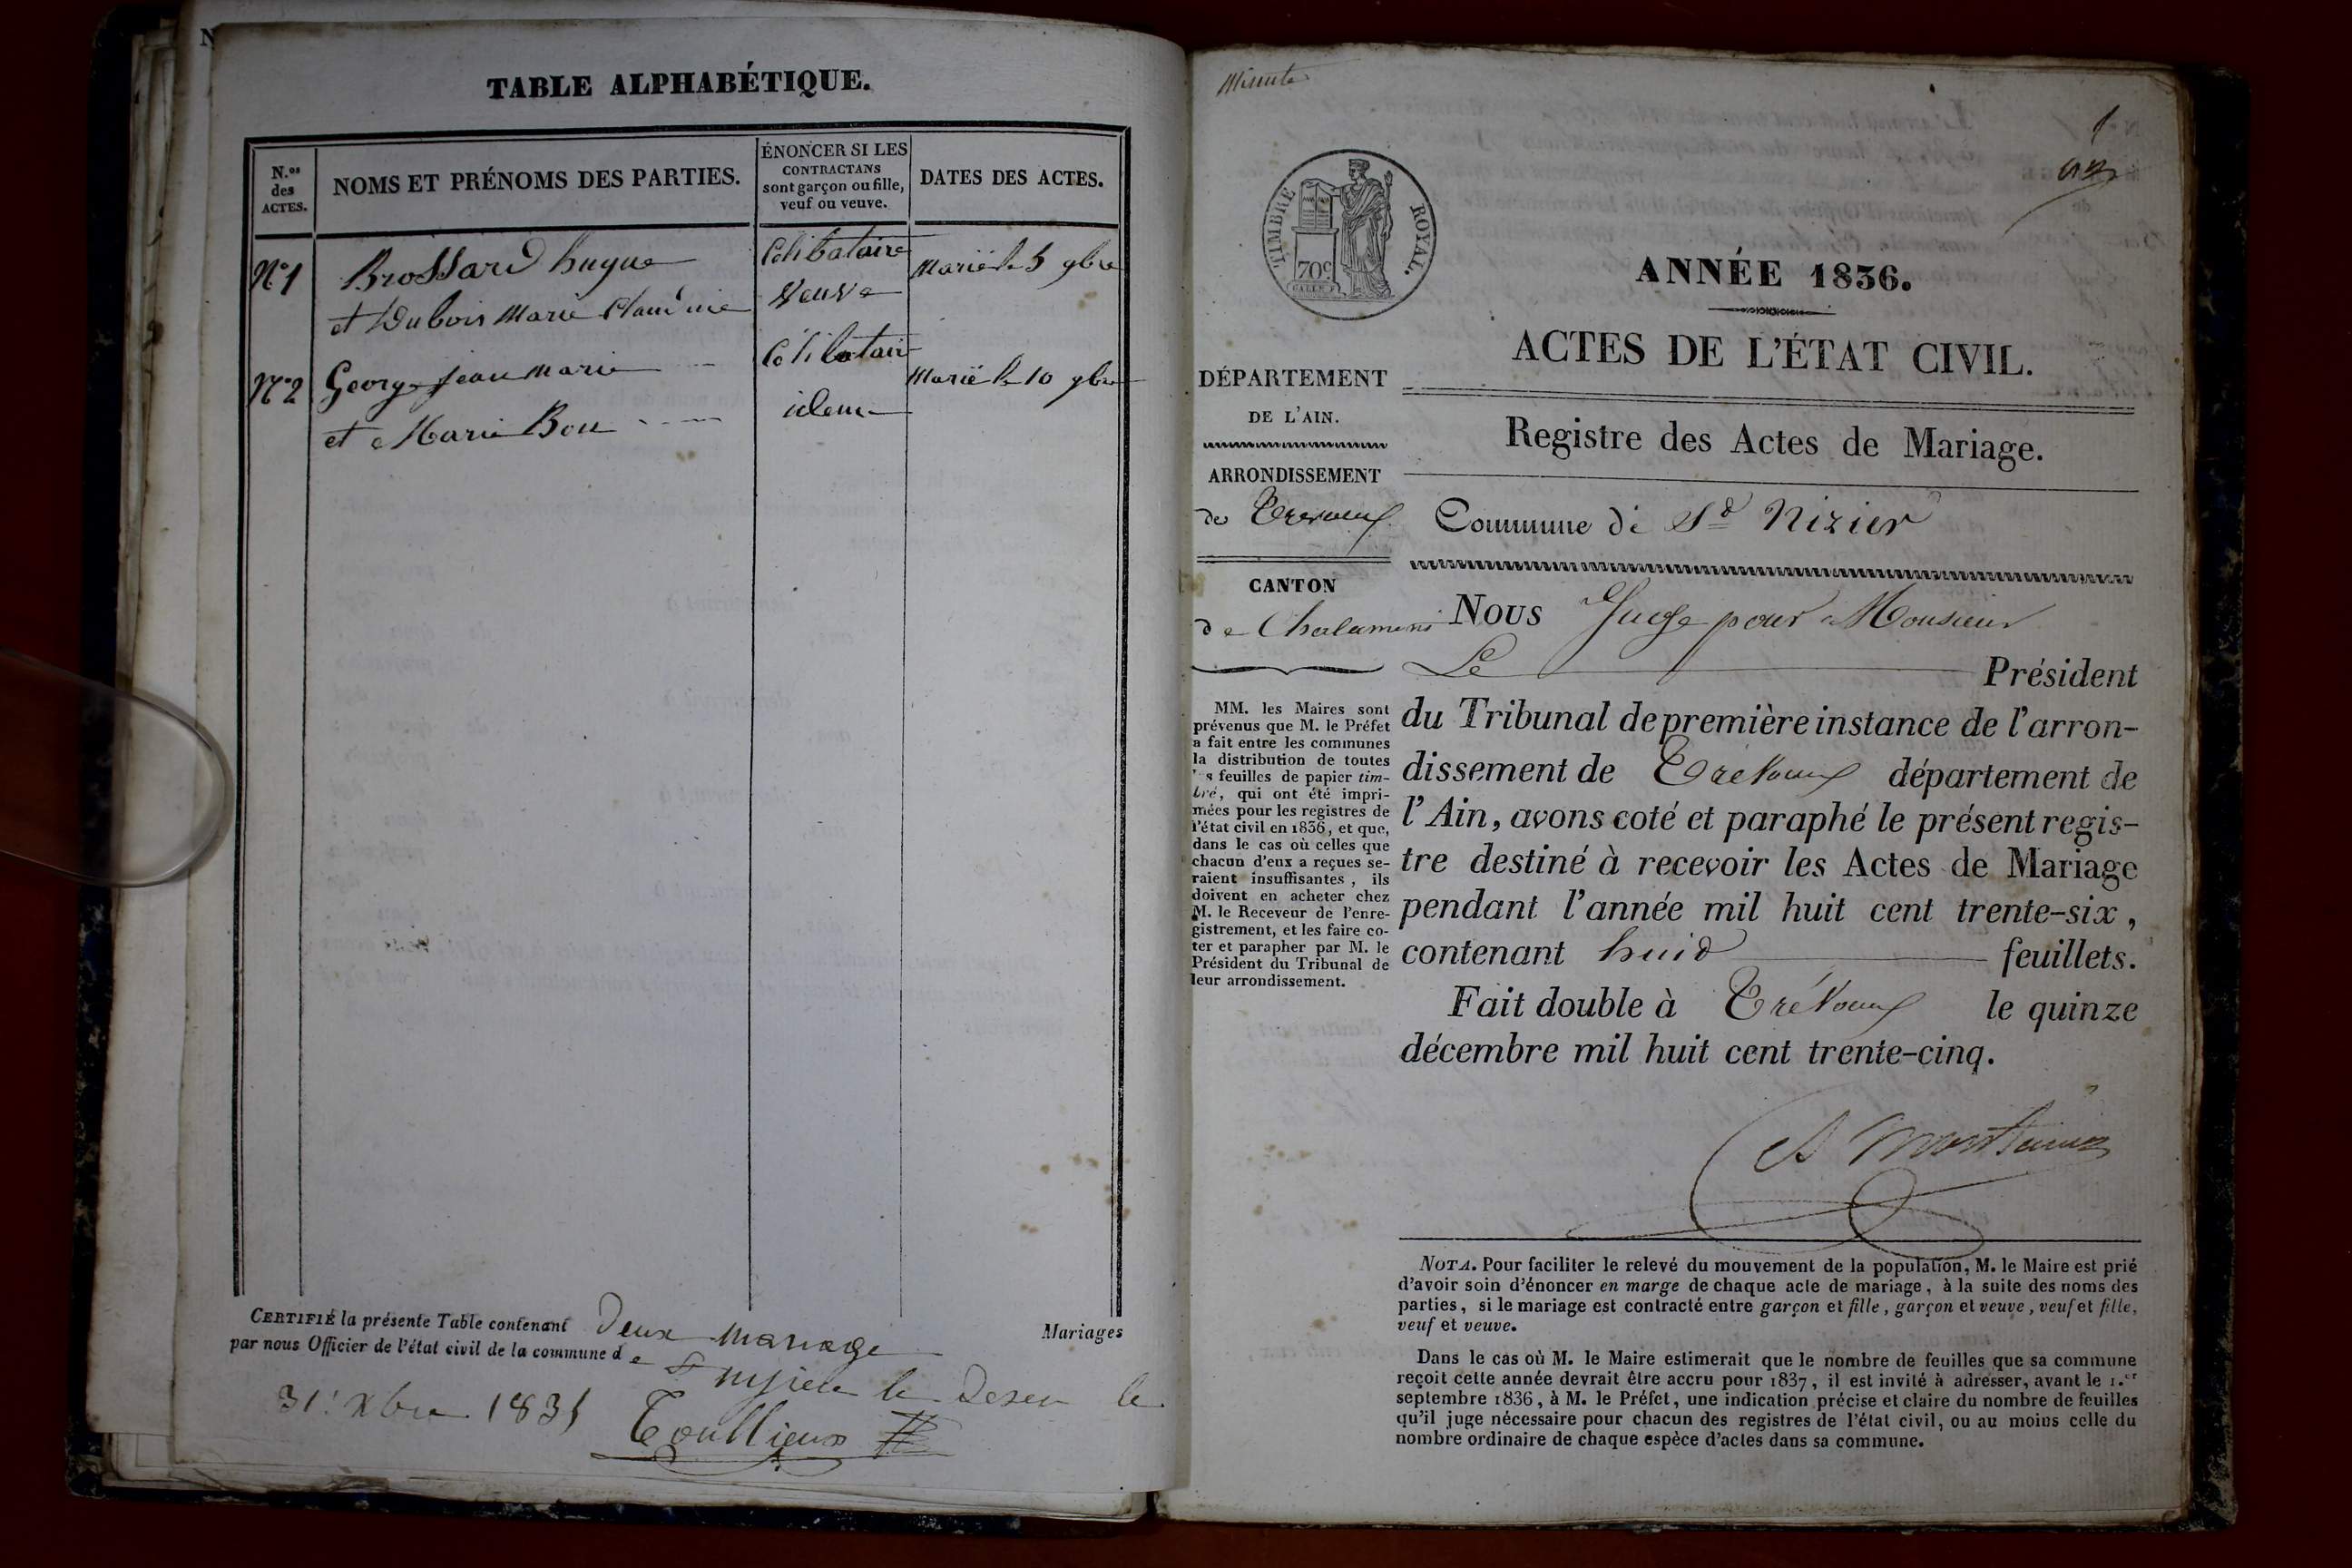 TABLE ALPHABÉTIQUE.
N.os des ACTES.
NOMS ET PRÉNOMS DES PARTIES.
ÉNONCER SI LES
CONTRACTANS
sont garçon ou fille,
veuf ou veuve.
DATES DES ACTES.
N°1 Brossard hugue Célibataire Marié le 5 9bre
et Dubois Marie Claudine veuve
N°2 George jean marie Célibataire Marié le 10 9bre
et Marie Bon idem
CERTIFIÉ la présente Table contenant Deux mariage Mariages
par nous Officier de l'état civil de la commune de St le Deser le
31 Xbre
Minute
1
TIMBRE ROYAL.
70c
ANNÉE 1836.
ACTES DE L'ÉTAT CIVIL.
DÉPARTEMENT
DE L'AIN.
Registre des Actes de Mariage.
ARRONDISSEMENT
de Trevoux
Commune de St Nizier
CANTON
de Chalamont
Nous Juge pour Monsieur
Le Président
du Tribunal de première instance de l'arron-
dissement de Trévoux département de
l'Ain, avons coté et paraphé le présent regis-
tre destiné à recevoir les Actes de Mariage
pendant l'année mil huit cent trente-six,
contenant huit feuillets.
Fait double à Trévoux le quinze
décembre mil huit cent trente-cinq.
MM. les Maires sont
prévenus que M. le Préfet
a fait entre les communes
la distribution de toutes
s feuilles de papier tim-
bré, qui ont été impri-
mées pour les registres de
l'état civil en 1836, et que,
dans le cas où celles que
chacun d'eux a reçues se-
raient insuffisantes, ils
doivent en acheter chez
M. le Receveur de l'enre-
gistrement, et les faire co-
ter et parapher par M. le
Président du Tribunal de
leur arrondissement.
NOTA. Pour faciliter le relevé du mouvement de la population, M. le Maire est prié
d'avoir soin d'énoncer en marge de chaque acte de mariage, à la suite des noms des
parties, si le mariage est contracté entre garçon et fille, garçon et veuve, veuf et fille,
veuf et veuve.
Dans le cas où M. le Maire estimerait que le nombre de feuilles que sa commune
reçoit cette année devrait être accru pour 1837, il est invité à adresser, avant le 1.er
septembre 1836, à M. le Préfet, une indication précise et claire du nombre de feuilles
qu'il juge nécessaire pour chacun des registres de l'état civil, ou au moins celle du
nombre ordinaire de chaque espèce d'actes dans sa commune.